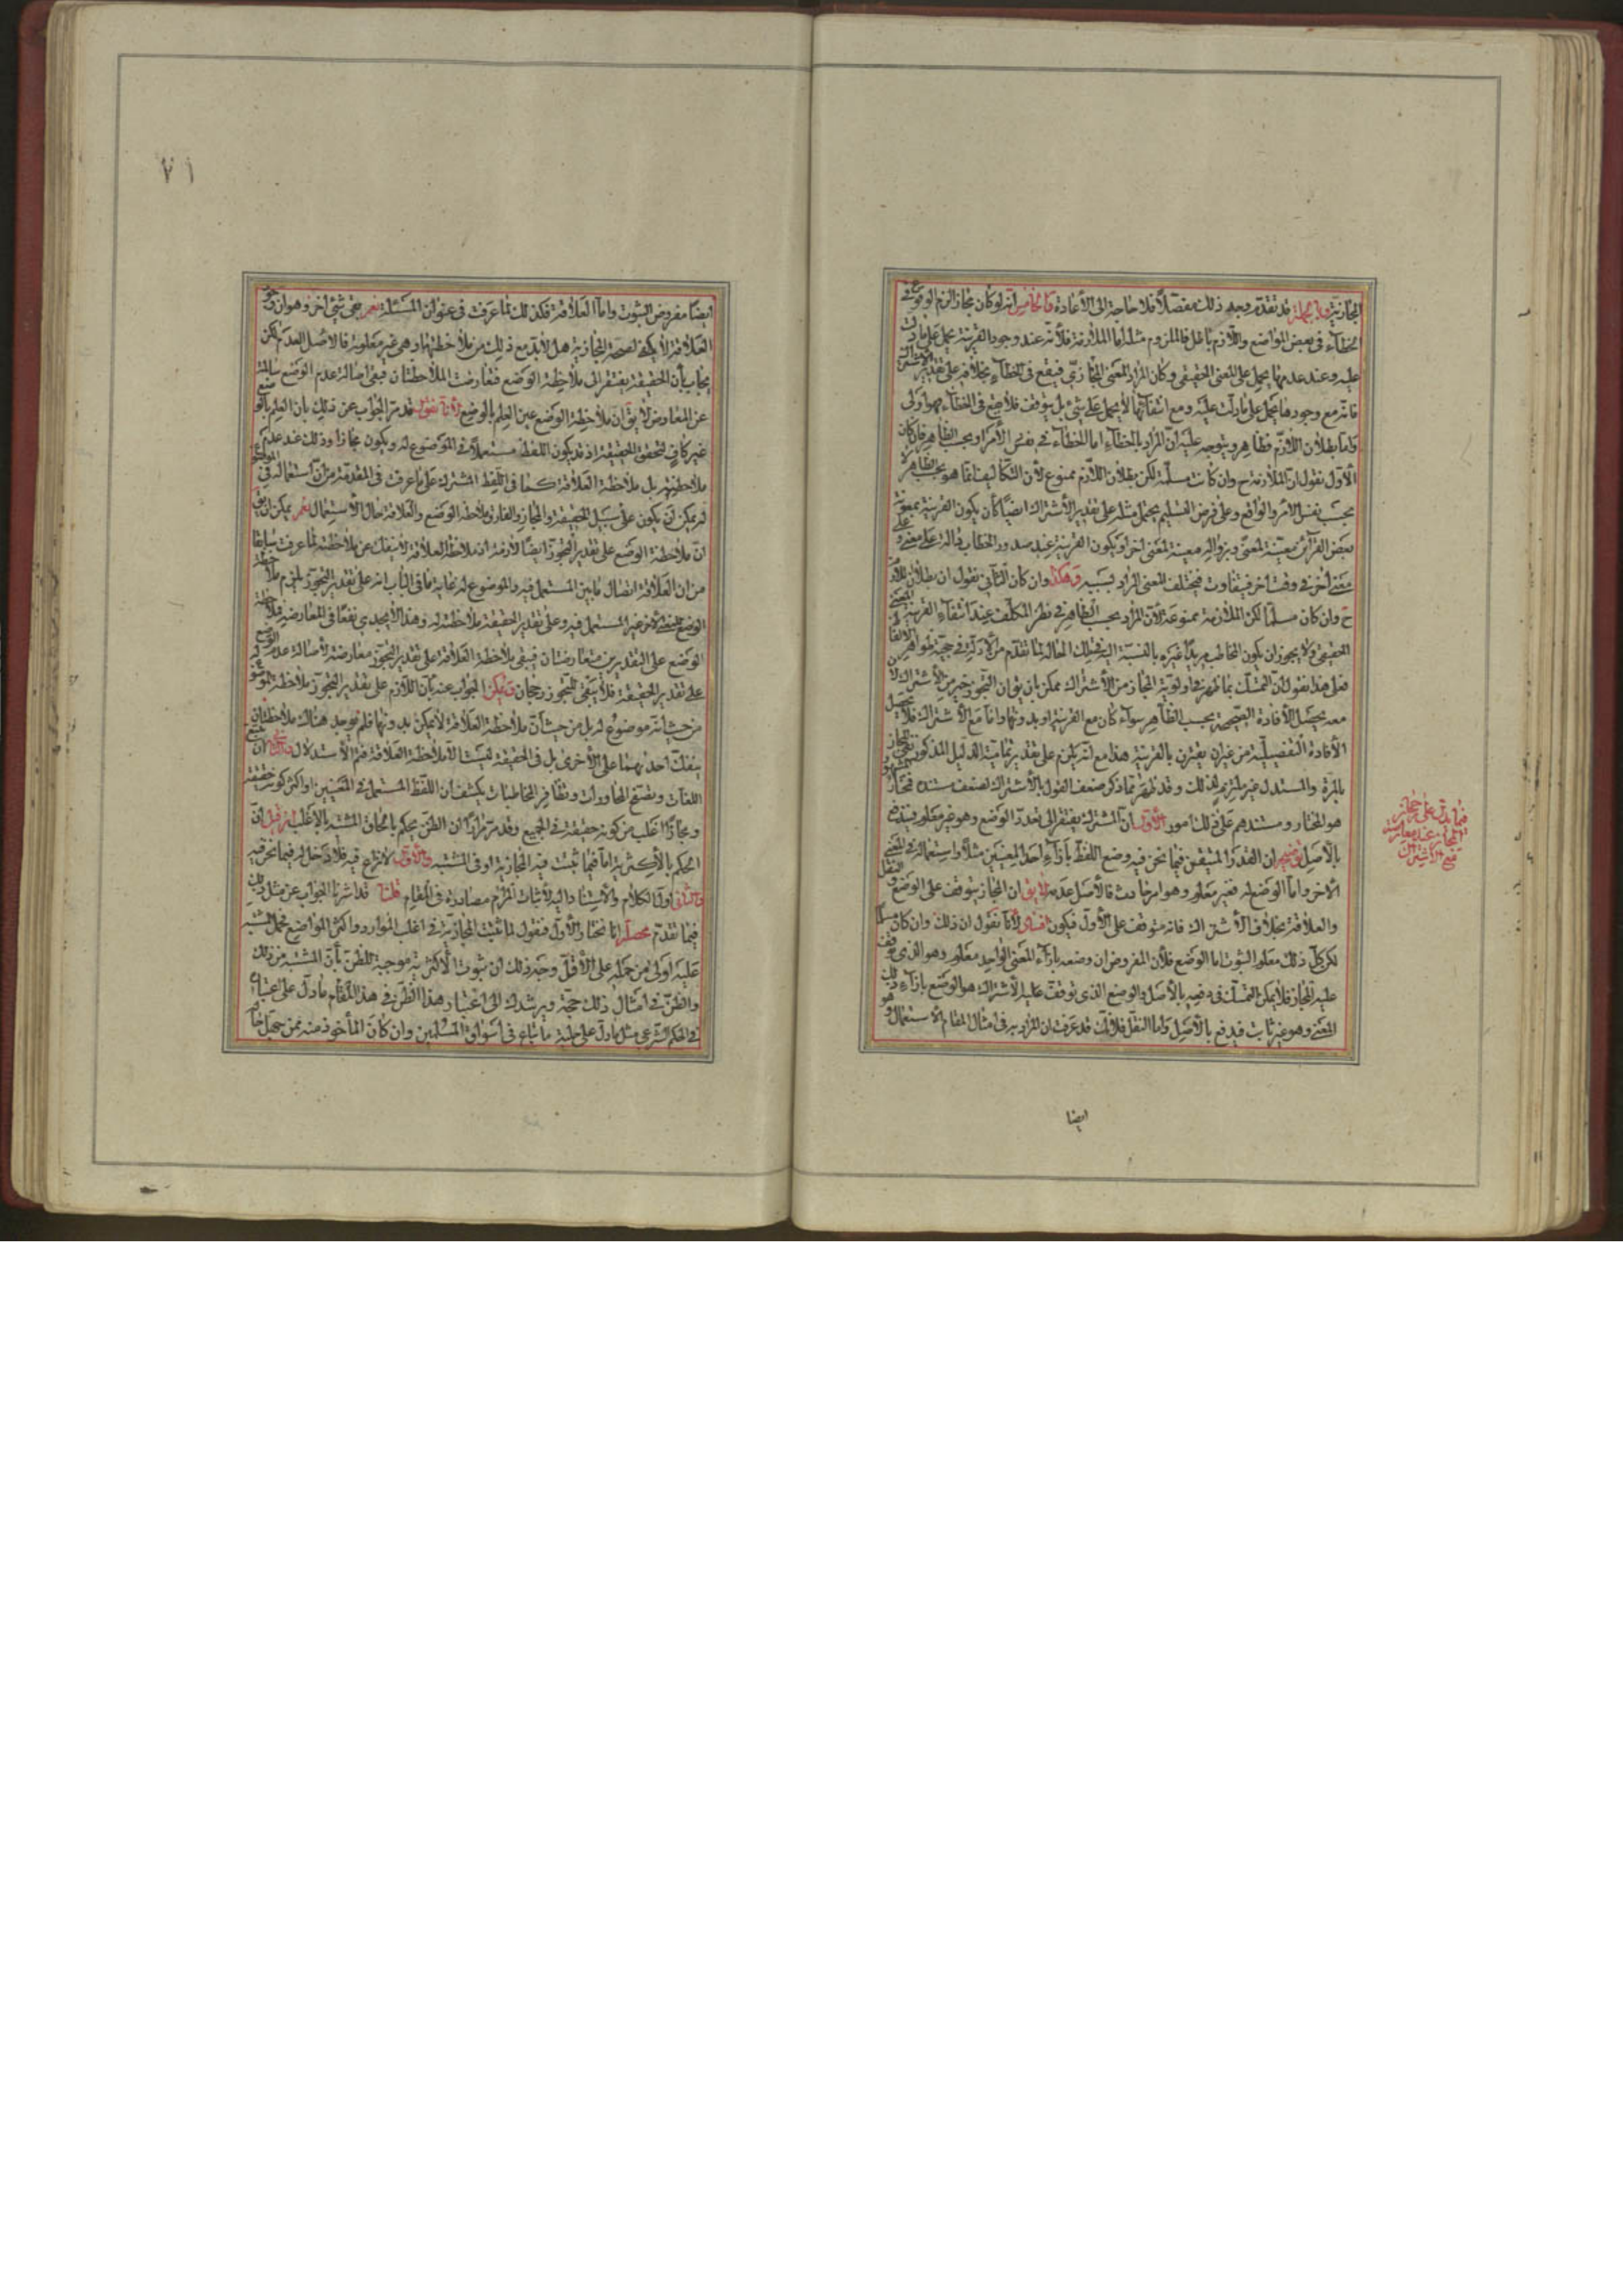 المجازية وبالجملة قد تقدم وجه ذلك مفصلا فلا حاجة الى الاعادة والخامس انه لو كان مجازا لزم الوقوع في
الخطاء في بعض المواضع واللازم باطل فالملزوم مثله اما الملازمة فلانه عند وجود القرينة يحمل على ما دلت
عليه وعند عدمها يحمل على المعنى الحقيقي وكان المراد المعنى المجازي فيقع في الخطاء بخلافه على تقدير الاشتراك
فانه مع وجودها يحمل على ما دلت عليه ومع انتفائها لا يحمل على شئ بل يتوقف فلا يقع في الخطاء فهو اولى
واما بطلان اللازم فظاهر ويتوجه عليه ان المراد بالخطاء اما الخطاء في نفس الامر او بحسب الظاهر فان كان
الاول نقول ان الملازمة ح وان كانت مسلمة لكن بطلان اللازم ممنوع لان التكاليف انما هو بحسب الظاهر لا
بحسب نفس الامر والواقع وعلى فرض التسليم يحتمل مثله على تقدير الاشتراك ايضا كأن يكون القرينة بمعونة
بعض القرآئن معينة لمعنى وبزواله معينة لمعنى اخر او يكون القرينة عند صدور الخطاب دالة على معنى و على
معنى اخر في وقت اخر فيتفاوت فيختلف المعنى المراد بسببه وهكذا وان كان الثاني نقول ان بطلان اللازم
ح وان كان مسلما لكن الملازمة ممنوعة لان المراد بحسب الظاهر في نظر المكلف عند انتفاء القرينة المعنى
الحقيقي ولا يجوز ان يكون المخاطب مريدا غيره بالنسبة اليه في تلك الحالة لما تقدم من الادلة في حجية ظواهر الالفاظ
فعلى هذا نقول ان التمسك بما ظهر في اولوية المجاز من الاشتراك ممكن بان يق ان التجوز خير من الاشتراك لان
معه يحصل الافادة الصحيحة بحسب الظاهر سواء كان مع القرينة او بدونها واما مع الاشتراك فلا يحصل
الافادة التفصيلية من غير ان يقترن بالقرينة هذا مع انه يلزم على تقدير تمامية الدليل المذكور نفي المجاز
بالمرة والمستدل غير ملتزم لذلك وقد ظهر مما ذكر ضعف القول بالاشتراك لضعف مستنده فمختار المشهور
هو المختار ومستندهم على ذلك امور الاول ان المشترك يفتقر الى تعدد الوضع وهو غير معلوم فيندفع
بالاصل توضيحه ان القدر المتيقن فيما نحن فيه وضع اللفظ بازاء احد المعنيين مثلا واستعماله في المعنى
الاخر واما الوضع له فغير معلوم وهو امر حادث فالاصل عدمه لا يق ان المجاز يتوقف على الوضع والنقل
والعلاقة بخلاف الاشتراك فانه متوقف على الاول فيكون لانا نقول ان ذلك وان كان مسلما
لكن كل ذلك معلوم الثبوت اما الوضع فلان المفروض ان وضعه بازاء المعنى الواحد معلوم وهو الذي وقف
عليه المجاز فلا يمكن التمسك في دفعه بالاصل والوضع الذي توقفت عليه الاشتراك هو الوضع بازاء ذلك
المعنى وهو غير ثابت فيدفع بالاصل واما النقل فلانك قد عرفت ان المراد به في امثال المقام الاستعمال وهو
فيما يدل على
المجاز عند معارضته
مع الاشتراك
ايضا
٧١
ايضا مفروض الثبوت واما العلاقة فكذلك لما عرفت في عنوان المسئلة نعم بقى شئ اخر وهو ان وجود
العلاقة لا يكفي لصحة المجازية هل لا بد مع ذلك من ملاحظتها وهي غير معلومة فالاصل العدم لكن
يجاب بان الحقيقة يفتقر الى ملاحظة الوضع فتعارضت الملاحظتان فيبقى اصالة عدم الوضع سالمة
عن المعارض لا يق ان ملاحظة الوضع عين العلم بالوضع لانا نقول قد مر الجواب عن ذلك بان العلم بالوضع
غير كاف لتحقق الحقيقة اذ قد يكون اللفظ مستعملا في الموضوع له ويكون مجازا وذلك عند عدم
ملاحظته بل ملاحظة العلاقة كما في اللفظ المشترك على ما عرفت في المقدمة من ان استعماله في الموضوع
له يمكن ان يكون على سبيل الحقيقة والمجاز والفارق ملاحظة الوضع والعلاقة حال الاستعمال نعم يمكن ان يق
ان ملاحظة الوضع على تقدير التجوز ايضا لازمة اذ ملاحظة العلاقة لا ينفك عن ملاحظته لما عرفت سابقا
من ان العلاقة اتصال ما بين المستعمل فيه والموضوع له غاية ما في الباب انه على تقدير التجوز يلزم ملاحظة
الوضع للمعنى غير المستعمل فيه وعلى تقدير الحقيقة ملاحظته له وهذا لا يجدي نفعا في المعارضة فملاحظة
الوضع على التقديرين متعارضتان فيبقى ملاحظة العلاقة على تقدير التجوز معارضة لاصالة عدم الوضع
على تقدير الحقيقة فلا يبقى للتجوز رجحان ويمكن الجواب عنه بان اللازم على تقدير التجوز ملاحظة الموضوع له
من حيث انه موضوع له بل من حيث ان ملاحظة العلاقة لا يمكن بدونها فلم يوجد هناك ملاحظتان
ينفك احدهما على الاخرى بل في الحقيقة ليست الا ملاحظة العلاقة فتم الاستدلال والثاني ان تتبع
اللغات وتصفح المحاورات وتظافر المخاطبات يكشف ان اللفظ المستعمل في المعنيين او اكثر كونه حقيقة
ومجازا اغلب من كونه حقيقة في الجميع وقد مر مرارا ان الظن يحكم بالحاق المشتبه بالاغلب فان قيل ان
الحكم بالاكثرية اما فيما ثبت فيه المجازية او في المشتبه والاول لا نزاع فيه فلا دخل له فيما نحن فيه
والثاني اول الكلام والاستناد اليه لاثبات المرام مصادرة في المقام قلنا قد اشرنا الجواب عن مثل ذلك
فيما تقدم محصله انا نختار الاول فنقول لما ثبت المجازية في اغلب الموارد واكثر المواضع فحمل المشتبه
عليه اولى من حمله على الاقل وجه ذلك ان ثبوت الاكثرية موجبة للظن بان المشتبه من ذلك
والظن في امثال ذلك حجة ويرشدك الى اعتبار هذا الظن في هذا المقام ما دل على اعتباره
في الحكم الشرعي مثل ما دل على حلية ما يباع في اسواق المسلمين وان كان المأخوذ منه ممن جهل حاله